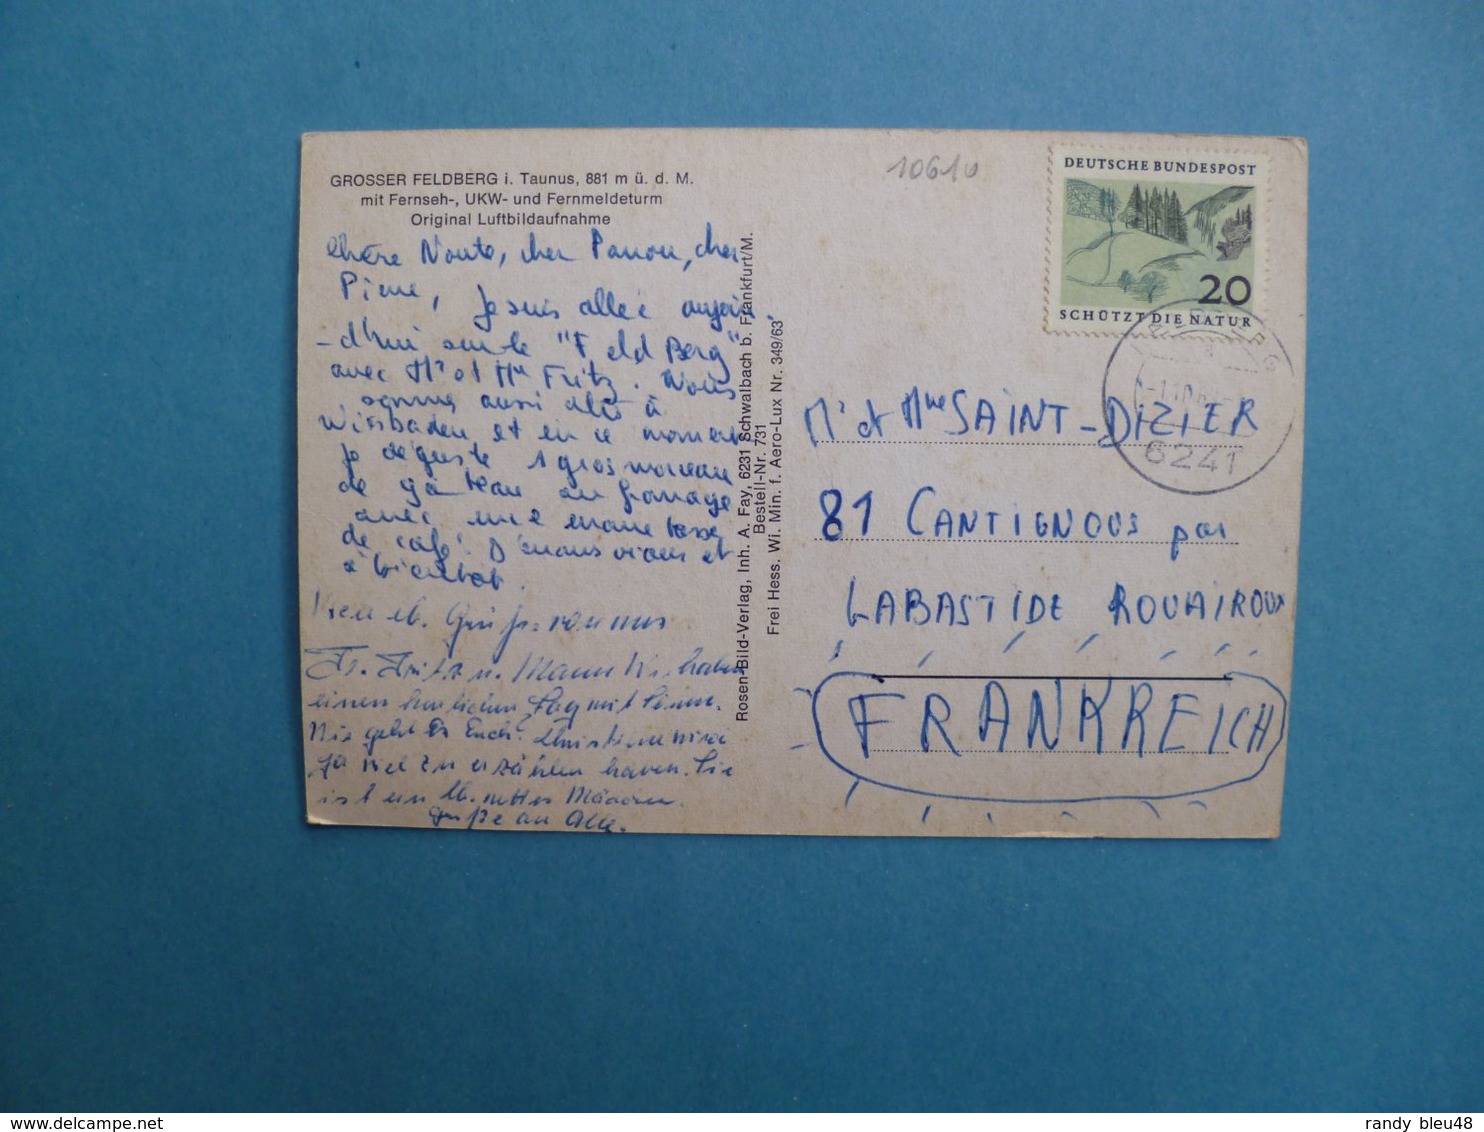 GROSSER FELDBERG i. Taunus, 881 m ü. d. M.
mit Fernseh-, UKW- und Fernmeldeturm
Original Luftbildaufnahme
10610
DEUTSCHE BUNDESPOST
20
SCHÜTZT DIE NATUR
6241
Chère Nouto, cher Panou, cher
Pierre, Je suis allée aujour
-d'hui sur le "Feld Berg"
avec Mr et Mme Fritz. Nous
sommes aussi allés à
Wisbaden et en ce moment
je déguste 1 gros morceau
de gâteau au fromage
avec une énorme tasse
de café. D'énormes et
à bientôt.
Fr. Fritz u. Mann Wir haben
einen herrlichen Tag mit
Wie geht Es Euch? Christiane wird
Ja viel zu erzählen haben. Sie
ist ein lb. nettes Mädchen.
Grüße an Alle.
Rosen-Bild-Verlag, Inh. A. Fay, 6231 Schwalbach b. Frankfurt/M.
Bestell-Nr. 731
Frei Hess. Wi. Min. f. Aero-Lux Nr. 349/63
Mr et Mme SAINT-DIZIER
81 CANTIGNOUS par
LABASTIDE ROUAIROUX
FRANKREICH
randy bleu48